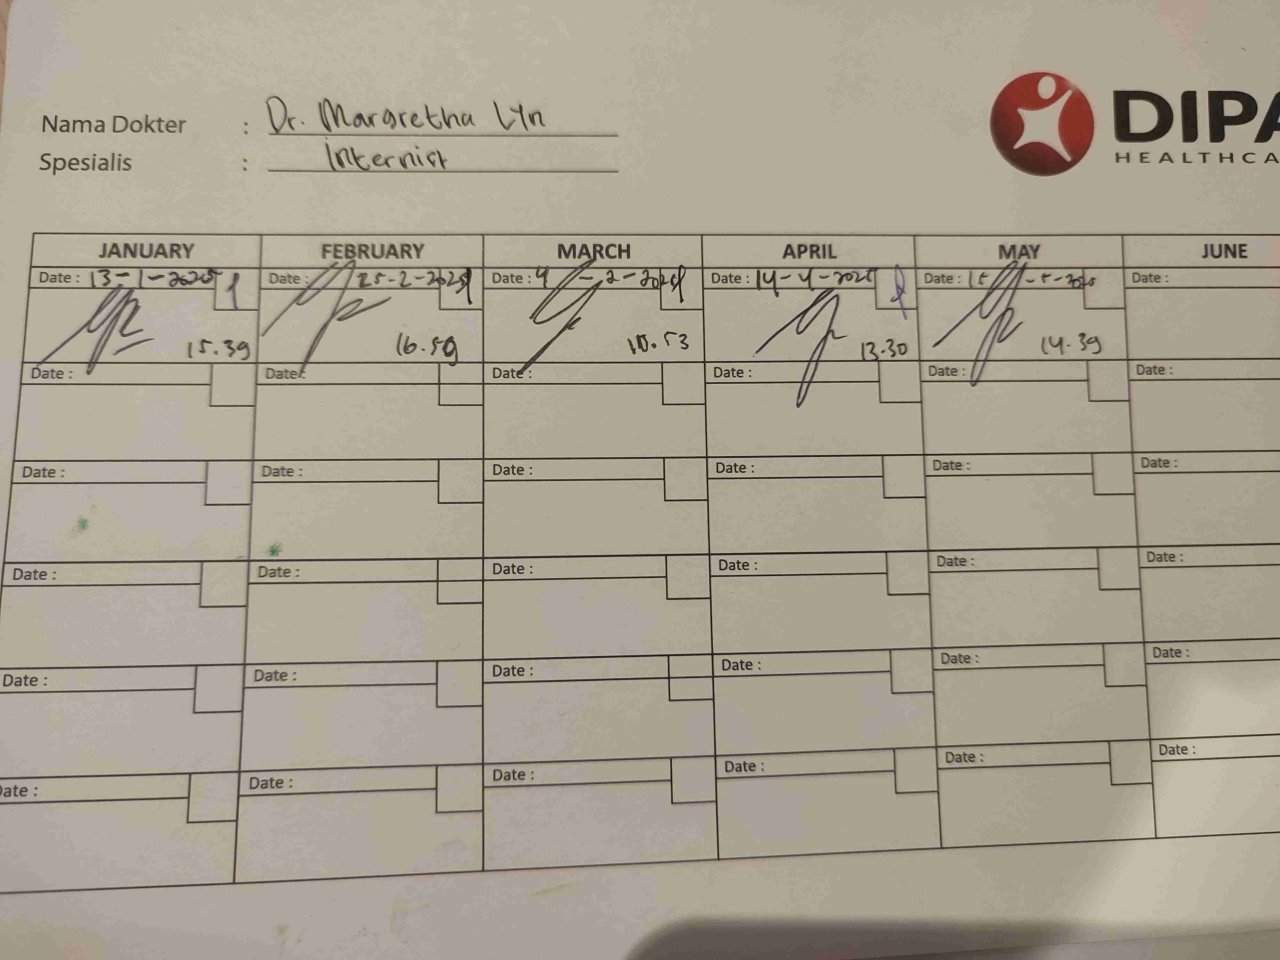 Nama Dokter : Dr. Margretha Lyn
Spesialis : Internist
DIPA
HEALTHCA
JANUARY FEBRUARY MARCH APRIL MAY JUNE
Date : 13-1-2025 Date : 25-2-2025 Date : 4 -2-2025 Date : 14-4-2025 Date : 15 -5-2025 Date :
15.39 16.59 10.53 13.30 14.39
Date : Date : Date : Date : Date : Date :
Date : Date : Date : Date : Date : Date :
Date : Date : Date : Date : Date : Date :
Date : Date : Date : Date : Date : Date :
ate : Date : Date : Date : Date : Date :